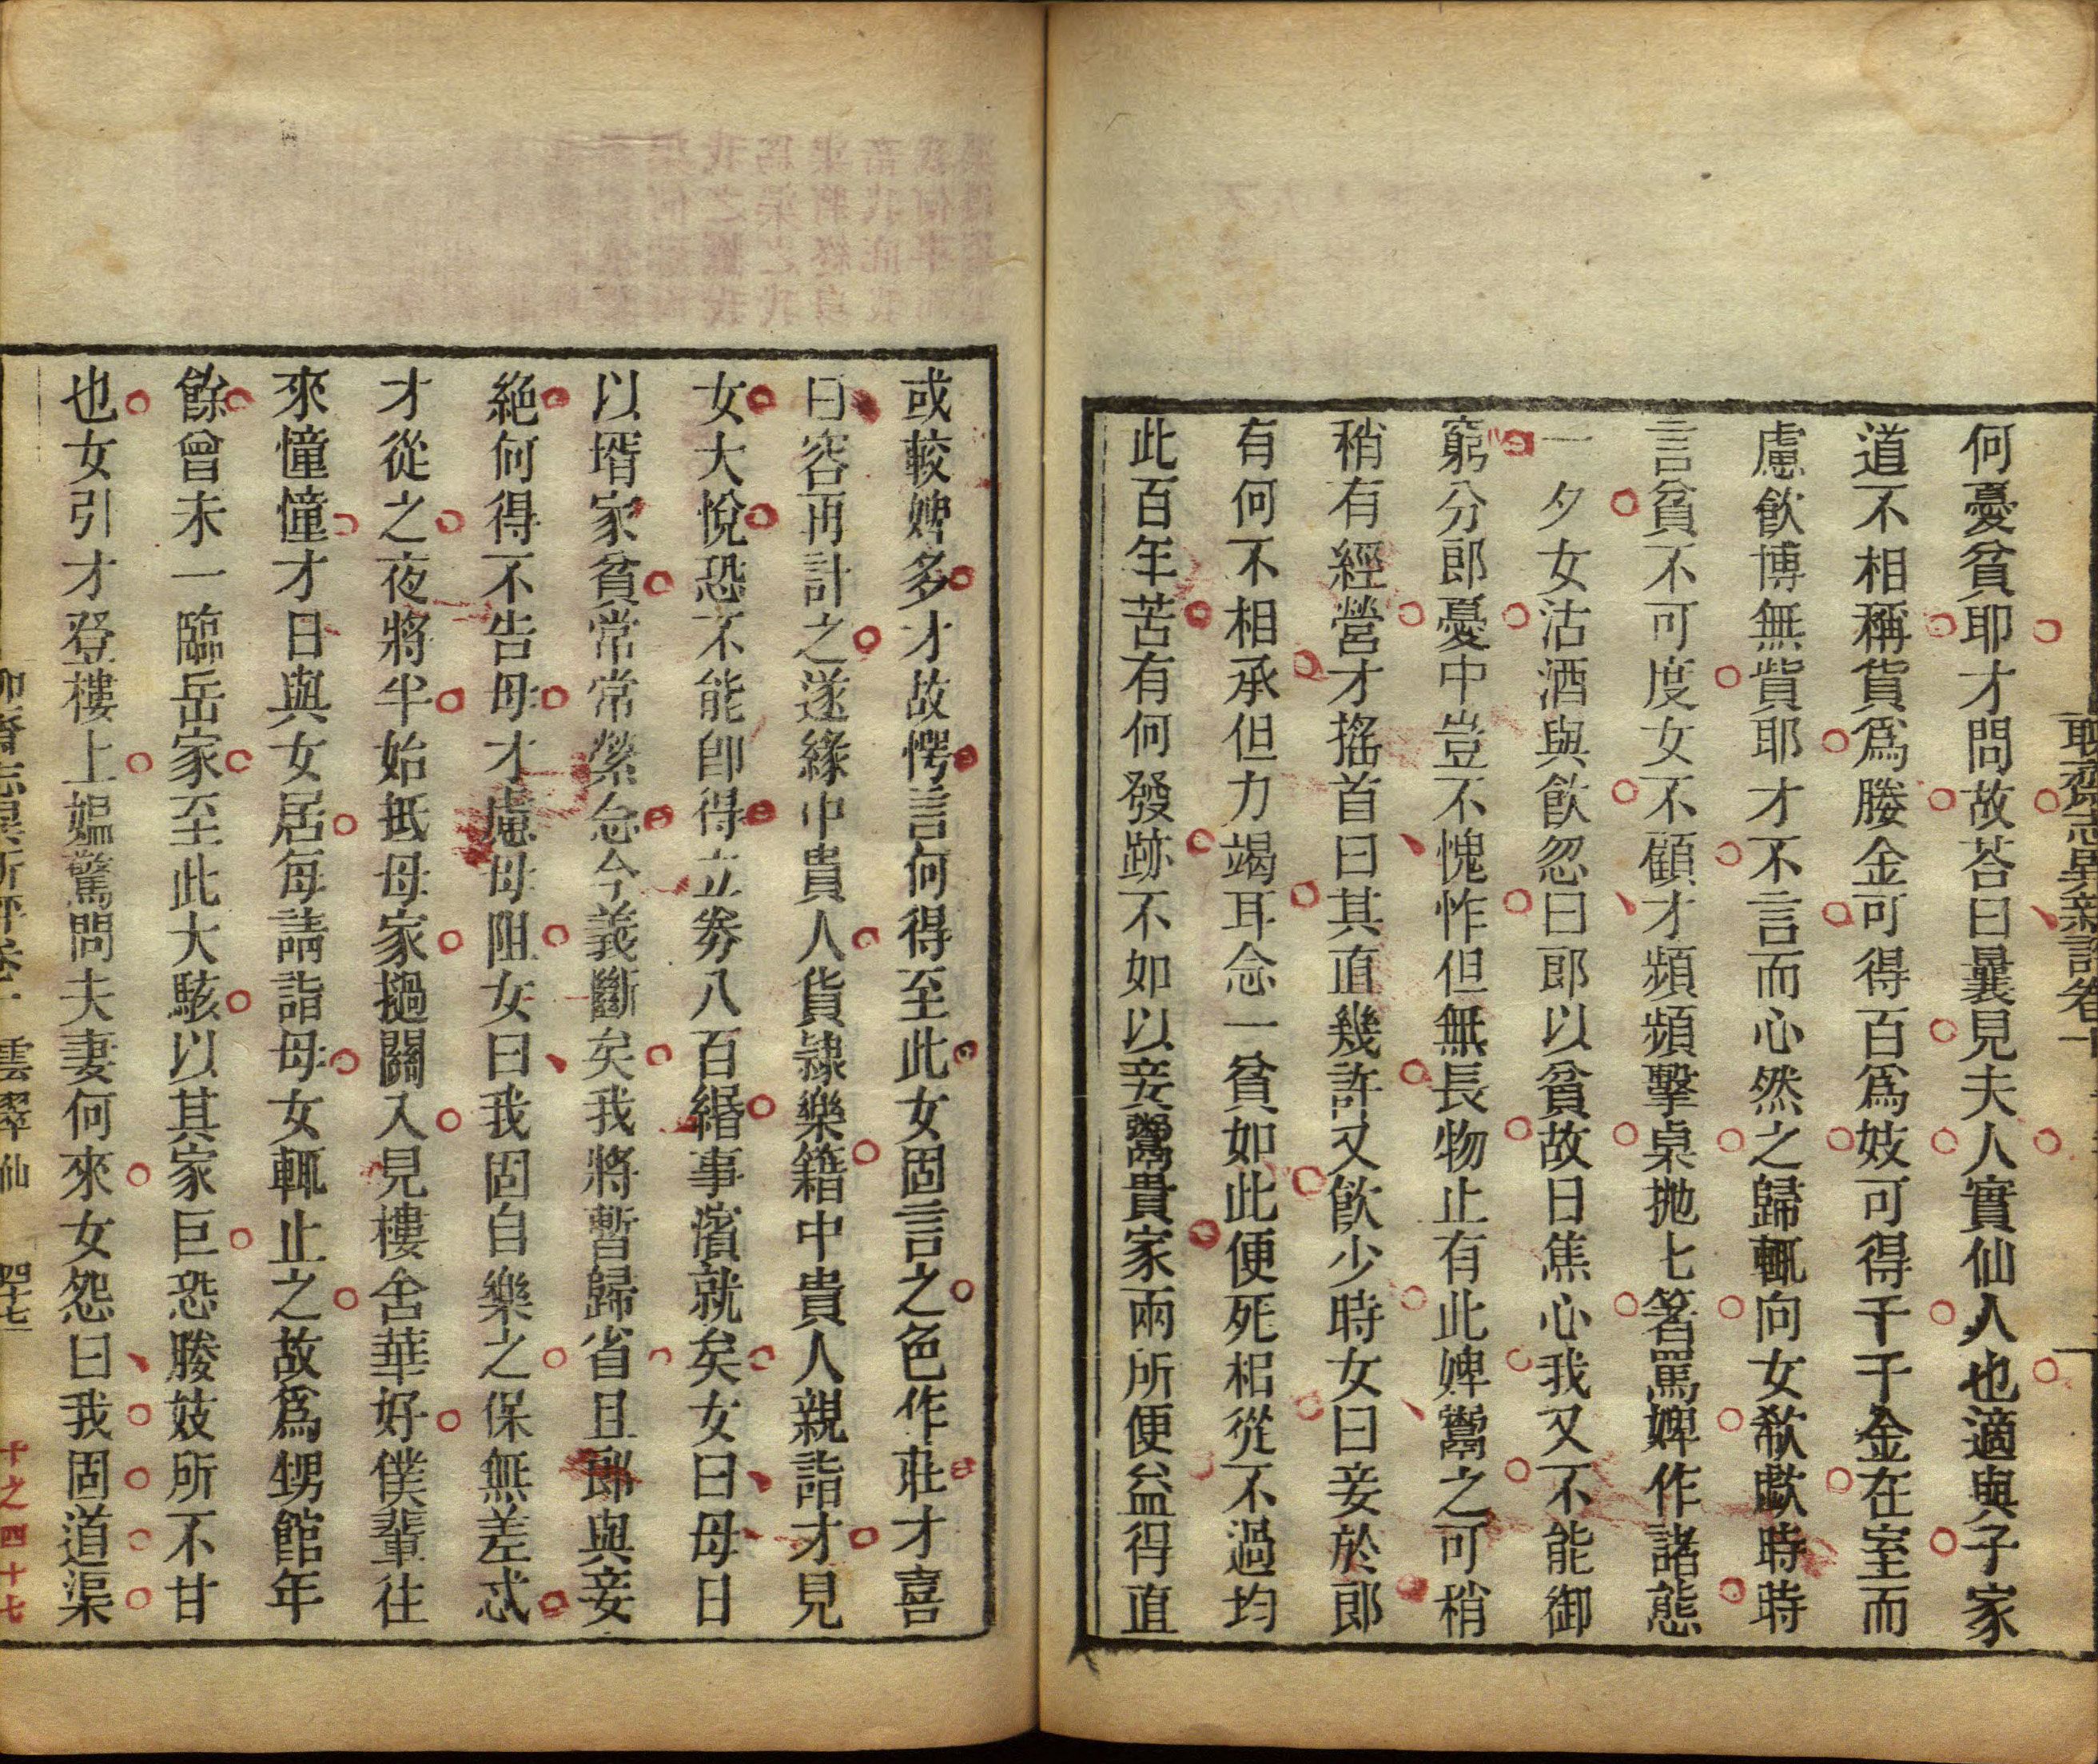 聊齋志異新評卷十
何憂貧耶才問故荅曰曩見夫人實仙人也適與子家
道不相稱貨爲媵金可得百爲妓可得千千金在室而
慮飲博無貲耶才不言而心然之歸輒向女欷歔時時
言貧不可度女不顧才頻頻擊桌抛匕箸罵婢作諸態
一夕女沽酒與飲忽曰郎以貧故日焦心我又不能御
窮分郎憂中豈不愧怍但無長物止有此婢鬻之可稍
稍有經營才搖首曰其直幾許又飲少時女曰妾於郎
有何不相承但力竭耳念一貧如此便死相從不過均
此百年苦有何發跡不如以妾鬻貴家兩所便益得直
或較婢多才故愕言何得至此女固言之色作莊才喜
曰容再計之遂緣中貴人貨隷樂籍中貴人親詣才見
女大悅恐不能卽得立劵八百緡事濱就矣女曰母日
以壻家貧常常縈念今義斷矣我將暫歸省且郎與妾
絶何得不告母才慮母阻女曰我固自樂之保無差忒
才從之夜將半始抵母家撾闗入見樓舍華好僕輩往
來憧憧才日與女居每請詣母女輒止之故爲甥館年
餘曾未一臨岳家至此大駭以其家巨恐媵妓所不甘
也女引才登樓上媪驚問夫妻何來女怨曰我固道渠
聊齋志異新評卷十 雲翠仙 四十七
十之四十七